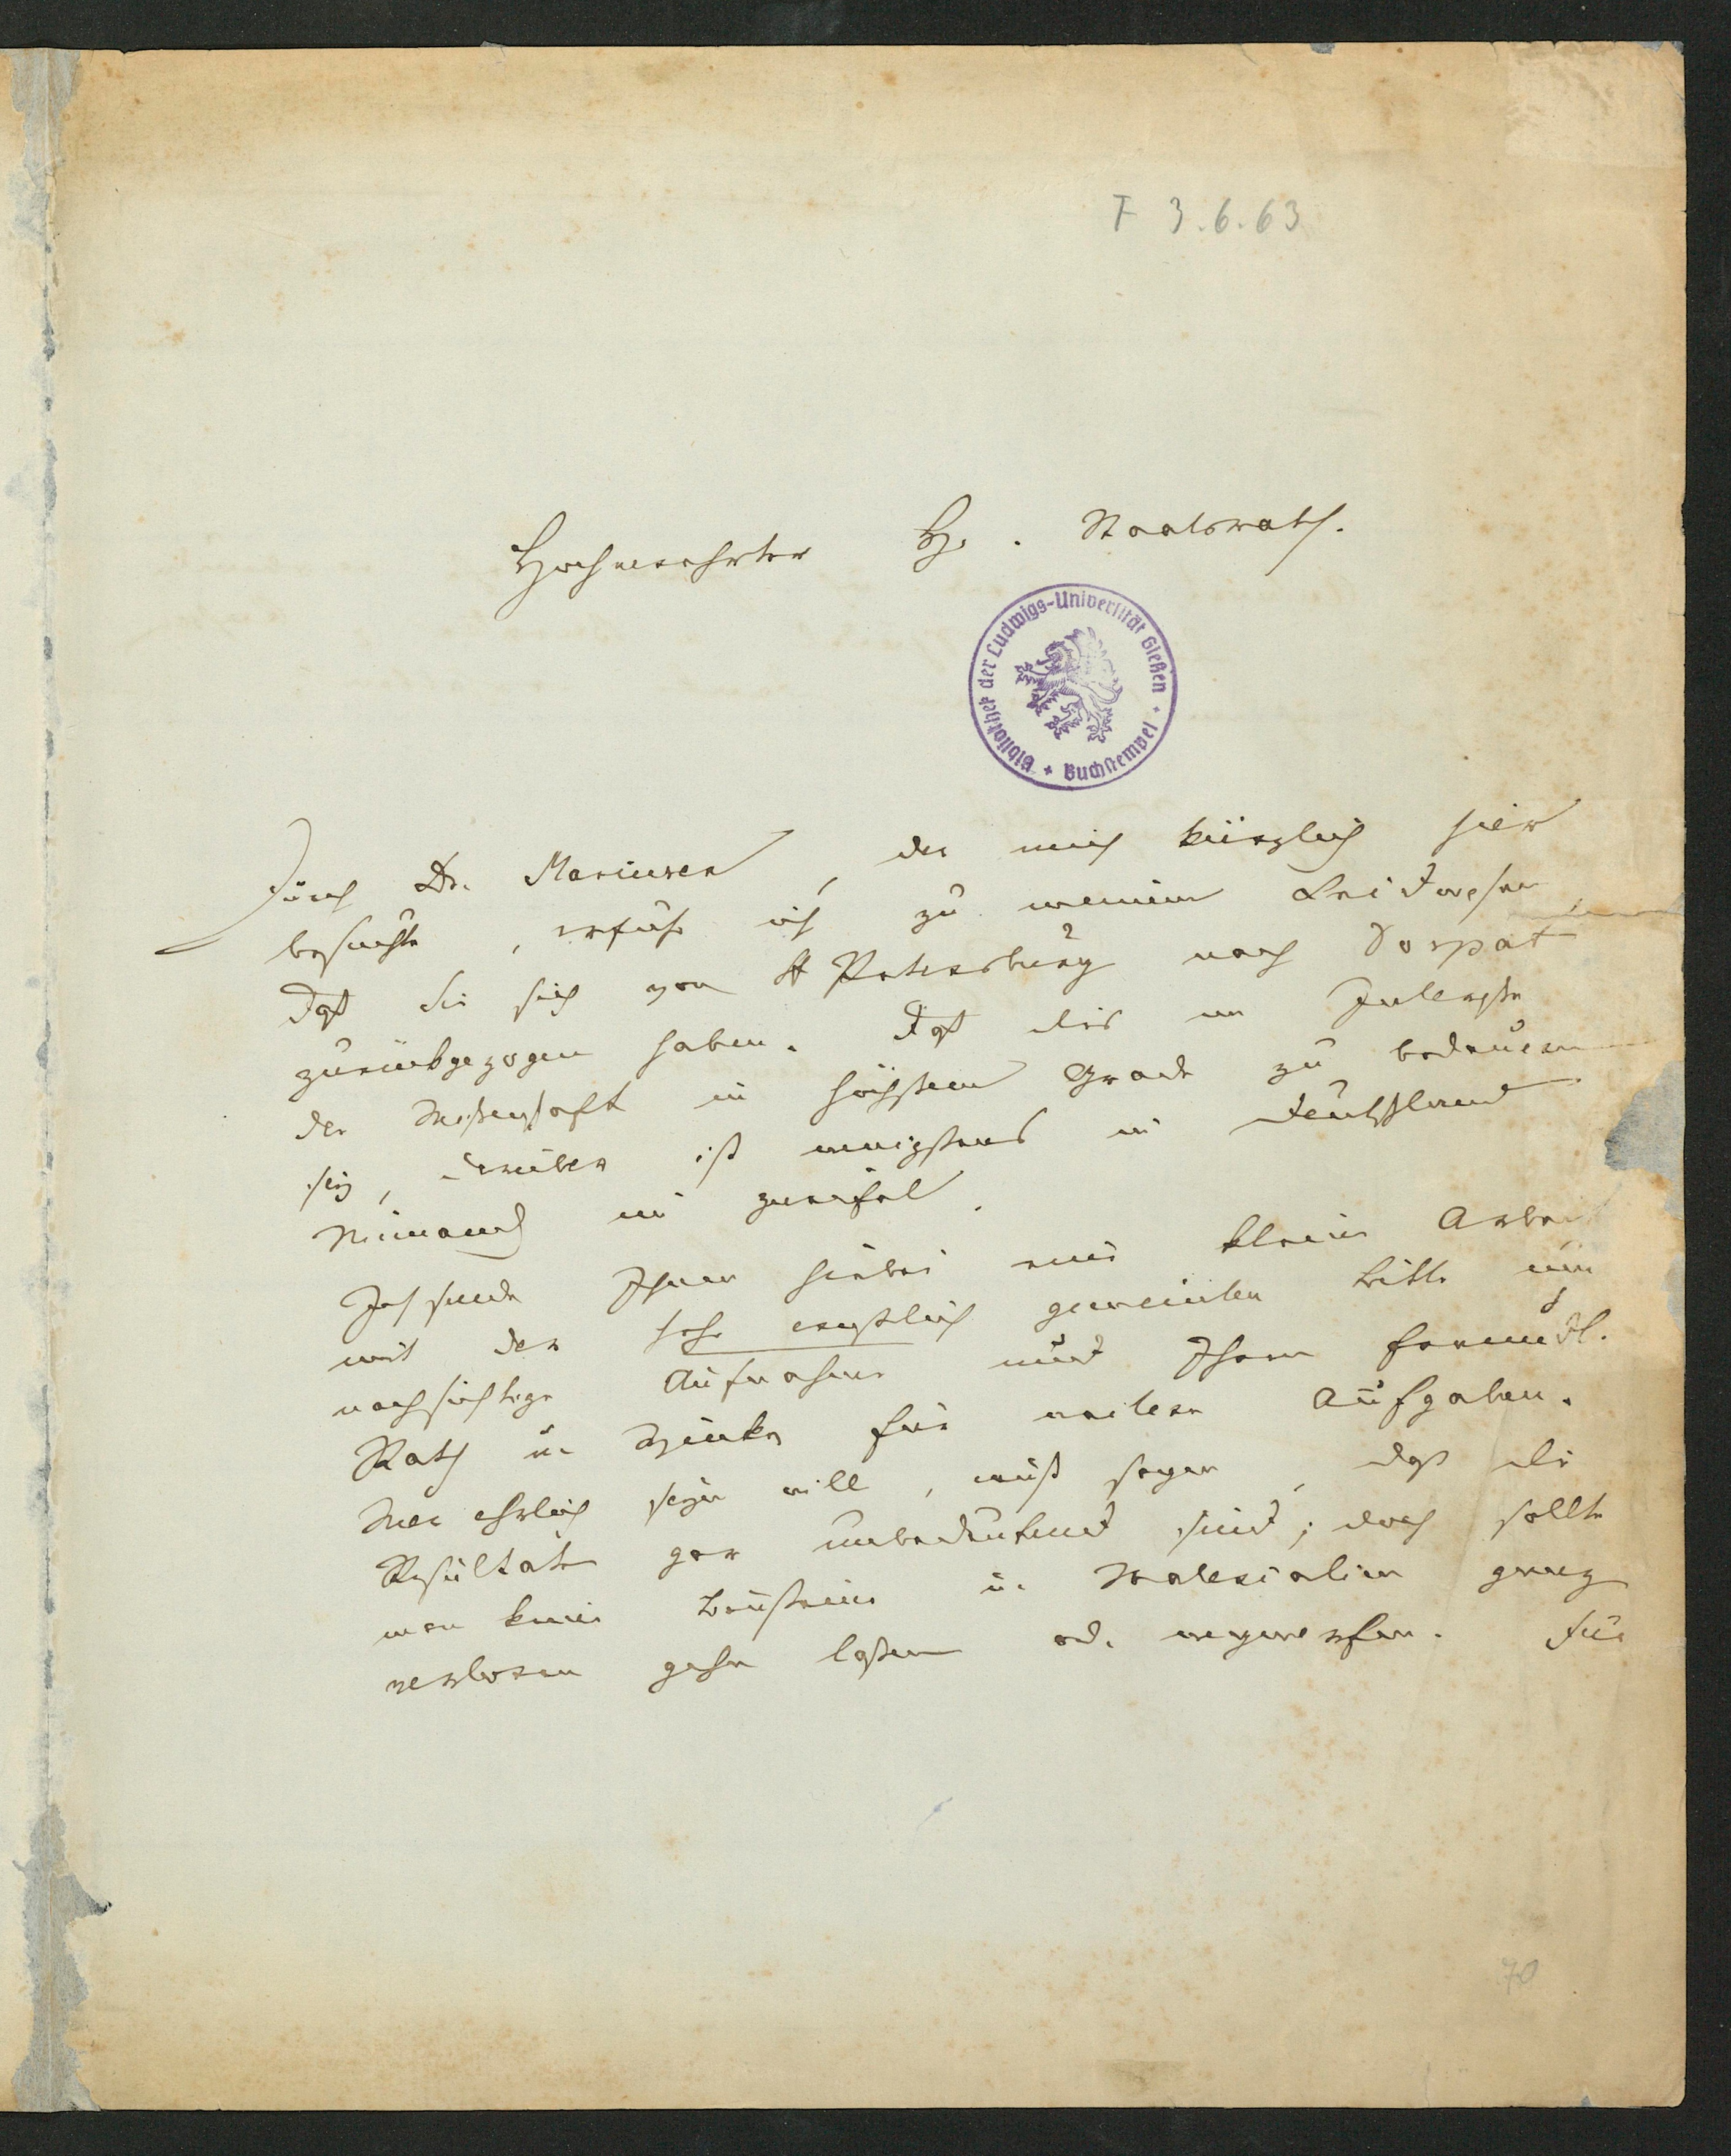 F 3.6.63
Hochverehrter Hr. Staatsrath.
Bibliothek der Ludwigs-Universität Gießen * Buchstempel *
Durch Dr. Marcusen, der mich kürzlich hier
besuchte, erfuhr ich zu meinem Leidwesen
daß Sie sich von St Petersburg nach Dorpat
zurückgezogen haben. Daß dies im Interesse
der Wissenschaft im höchsten Grade zu bedauern
sey, darüber ist wenigstens in Deutschland
Niemand im Zweifel.
Ich sende Ihnen hiebei eine kleine Arbeit
mit der sehr ernstlich gemeinten Bitte um
nachsichtige Aufnahme und Ihren freundl.
Rath u. Winke für weitere Aufgaben.
Wer ehrlich seyn will, muß sagen, daß die
Resultate gar unbedeutend sind; doch sollte
man keine Bausteine u. Materialien ganz
verloren gehn laßen od. wegwerfen. Für
70